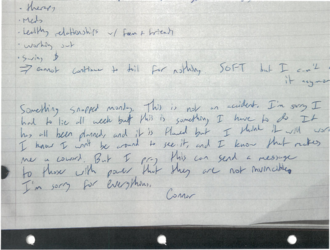 - therapy
- Meds
- healthy relationships w/ fam & friends
- working out
- Saving $
→ cannot continue to fail for nothing SOFT but I can't
it anymore
Something snapped monday. This is not an accident. I'm sorry I
had to lie all week but this is something I have to do. It
has all been planned, and it is flawed but I think it will work
I know I won't be around to see it, and I know that makes
me a coward. But I pray this can send a message
to those with power that they are not invincible.
I'm sorry for everything.
Connor